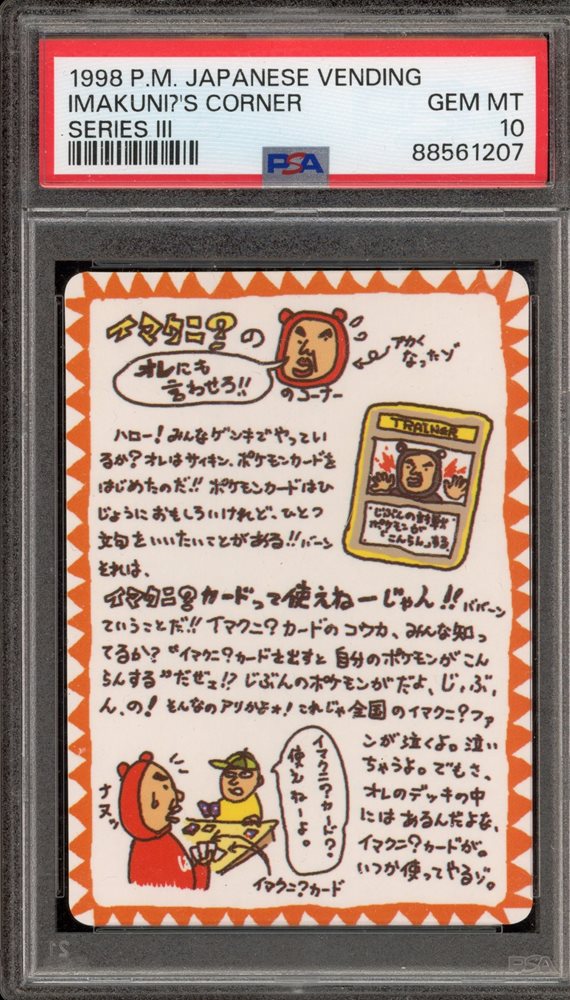 1998 P.M. JAPANESE VENDING
IMAKUNI?'S CORNER GEM MT
SERIES III 10
PSA 88561207
イマクニ?の
オレにも
言わせろ!!
のコーナー
アカく
なったゾ
TRAINER
じぶんの対戦
ポケモンが
「こんらん」する。
ハロー!みんなゲンキでやってい
るか?オレはサイキン、ポケモンカードを
はじめたのだ!!ポケモンカードはひ
じょうにおもしろいけれど、ひとつ
文句をいいたいことがある!!バーン
それは、
イマクニ?カードって使えねーじゃん!!ババーン
ていうことだ!!イマクニ?カードのコウカ、みんな知っ
てるか?“イマクニ?カードを出すと自分のポケモンがこん
らんする”だぜェ!?じぶんのポケモンがだよ、じ,ぶ,
ん,の!そんなのアリかよォ!これじゃ全国のイマクニ?ファ
ンが泣くよ。泣い
ちゃうよ。でもさ、
オレのデッキの中
にはあるんだよな、
イマクニ?カードが。
いつか使ってやるゾ。
イマクニ?カード?
使えねーよ。
ナヌッ
イマクニ?カード
PSA